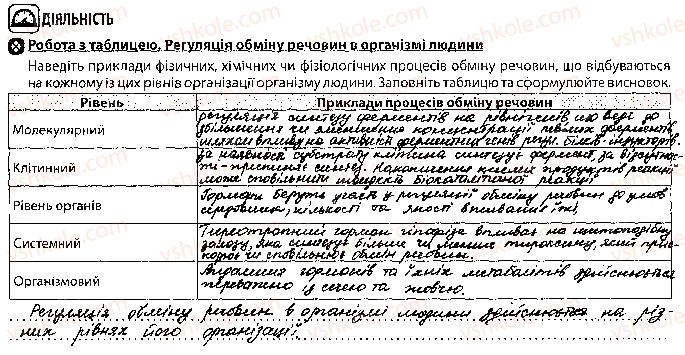 ДІЯЛЬНІСТЬ
Робота з таблицею. Регуляція обміну речовин в організмі людини
Наведіть приклади фізичних, хімічних чи фізіологічних процесів обміну речовин, що відбуваються
на кожному із цих рівнів організації організму людини. Заповніть таблицю та сформулюйте висновок.
Рівень Приклади процесів обміну речовин
Молекулярний
регуляція синтезу ферментів на рівні генів що веде до
збільшення чи зменшення концентрації певних ферментів
шляхом впливу на активність ферментних генів білків-індукторів.
Клітинний
За наявності субстрату клітина синтезує фермент, за відсутнос-
ті - припиняє синтез. Накопичення кінцевих продуктів реакції
може сповільнити швидкість біокаталітичної реакції
Рівень органів
Гормони беруть участь у регуляції обміну речовин до умов
середовища, кількості та якості вживання їжі,
Системний
Тиреотропний гормон гіпофіза впливає на щитоподібну
залозу, яка синтезує більше чи менше тироксину, який прис-
корює чи сповільнює обмін речовин.
Організмовий
Видалення гормонів та їхніх метаболітів здійснюється
переважно із сечею та жовчю.
Регуляція обміну речовин в організмі людини здійснюється на різ-
них рівнях його організації.